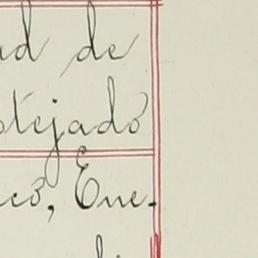 ad de
otejado
ico, Ene.